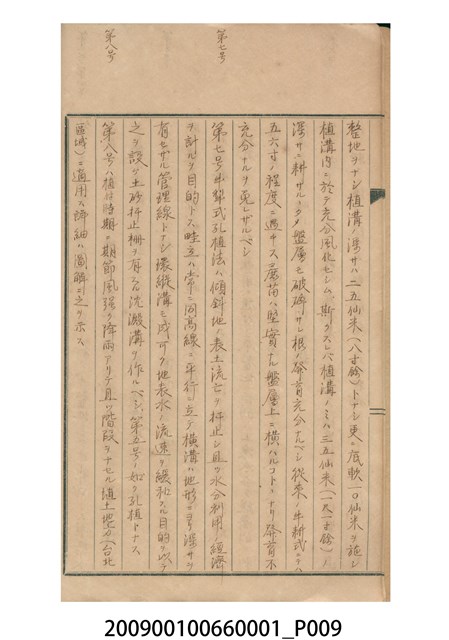 整地ヲナシ植溝ノ深サハ二五仙米(八寸餘)トナシ更ニ底耿一〇仙米ヲ施シ
植溝内ニ於テ充分風化セシム、斯クスレバ植溝ノミハ三五仙米(一尺一寸餘)ノ
深サニ耕サルヽタメ盤層モ破碎サレ根ノ發育充分ナルベシ從來ノ牛耕式ニテハ
五六寸ノ程度ニ過キス蔗苗ハ堅實ナル盤層上ニ横ハルコトヽナリ發育不
充分ナルヲ免レザルベシ
第七号
第七号 式孔植法ハ傾斜地ノ表土流亡ヲ抑止シ且ツ水分利用ノ經濟
ヲ計ルヲ目的トス、畦立ハ常ニ同高線ニ平行ニ立テ横溝ハ地形ニ 深サヲ
有セザル管理線トナシ環縦溝モ成可ク地表水ノ流速ヲ緩和スル目的ヲ以テ
之ヲ設ケ土砂抑止柵ヲ有スル沈澱溝ヲ作ルベシ、第五号ノ如ク孔植トナス
第八号
第八号ハ植付時期ノ期節風强ク降雨アリテ且ツ階段ヲナセル埴土地方(台北
區域)ニ適用ス詳細ハ圖解ニ之ヲ示ス
200900100660001_P009